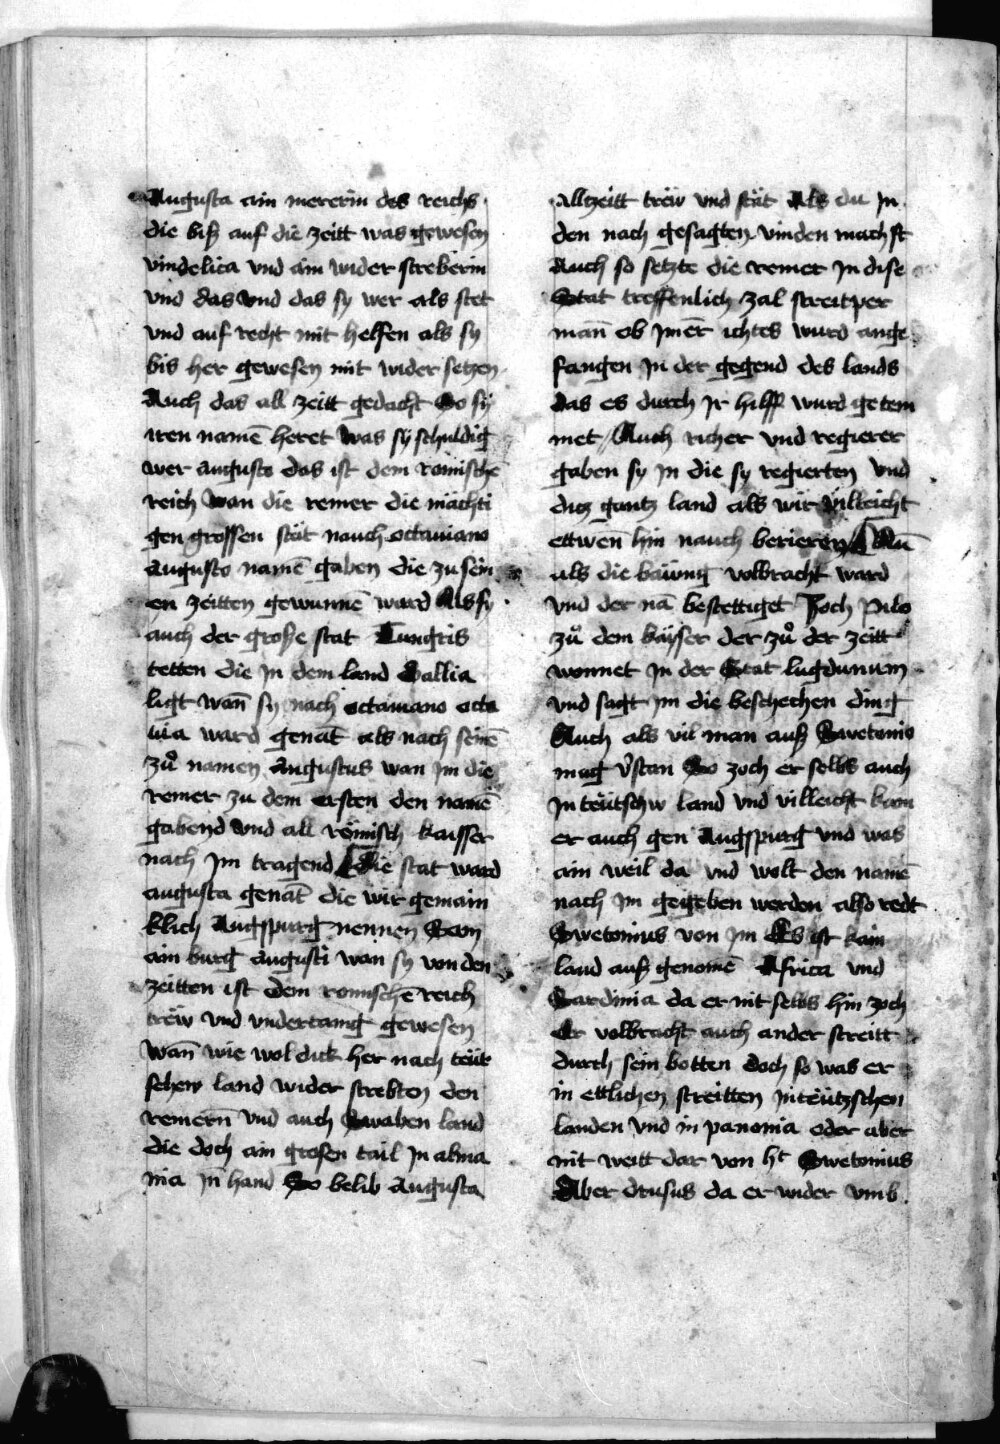 Augusta ain mererin des reichs
die biß auf die zeitt was gewesen
vindelica vnd ain wider streberin
vnd das vnd das sy wer als stet
vnd auf recht mit helfen als sy
bis her gewesen mit wider setzen
Auch das all zeitt gedacht So sy
iren namē heret was sy schuldig
wer augusto das ist dem römische
reich wan die remer die mächti
gen grossen stät nauch octauiano
augusto namē gaben die zu sein
en zeitten gewunnē ward Als sy
auch der große stat Tungris
tetten die jn dem land Gallia
ligt wan̄ sy nach octauiano octa
uia ward genāt als nach seinē
zů namen Augustus wan jm die
remer zu dem ersten den namē
gabend vnd all römisch kaisser
nach jm tragend die stat ward
augusta genāt die wir gemain
klich Augspurg nennen
ain burg augusti wan sy von den
zeitten ist dem romischē reich
trëw vnd vndertanig gewesen
wan̄ wie wol dick her nach teüt
schen land wider strebten den
remern̄ vnd auch Swaben land
die doch ain grosen tail jn alma
nia jn̄ hand So belib Augusta
allzeitt trëw vnd stät Als du jn
den nach gesagten vinden machst
Auch so setzte die remer jn dise
Stat treffenlich zal streitper
man̄ ob jmer ichtes wurd ange
fangen jn der gegend des lands
das es durch jr hilff wurd getem
met Auch richer vnd regierer
gaben sy jn die sy regierten vnd
ditz gantz land als wir villeicht
ettwen hin nauch berieren Nū
als die baüung volbracht ward
vnd der nā bestettiget zoch pilo
zů dem käyser der zů der zeitt
wonnet jn der Stat lugdunum
vnd sagt jm die beschechen ding
Auch als vil man auß Swetonio
mag v̓stan So zoch er selbs auch
jn teütschw land vnd villeicht kam
er auch gen Augspurg vnd was
ain weil da vnd wolt den namē
nach jm gegeben werden also redt
Swetonius von jm Es ist kain
land auß genomē Africa vnd
Sardinia da er nit selbs hin zoch
Er volbracht auch ander streitt
durch sein botten doch so was er
in ettlichen streitten jn teützschen
landen vnd in panonia oder aber
nit weitt dar von ht Swetonius
Aber drusus da er wider vmb